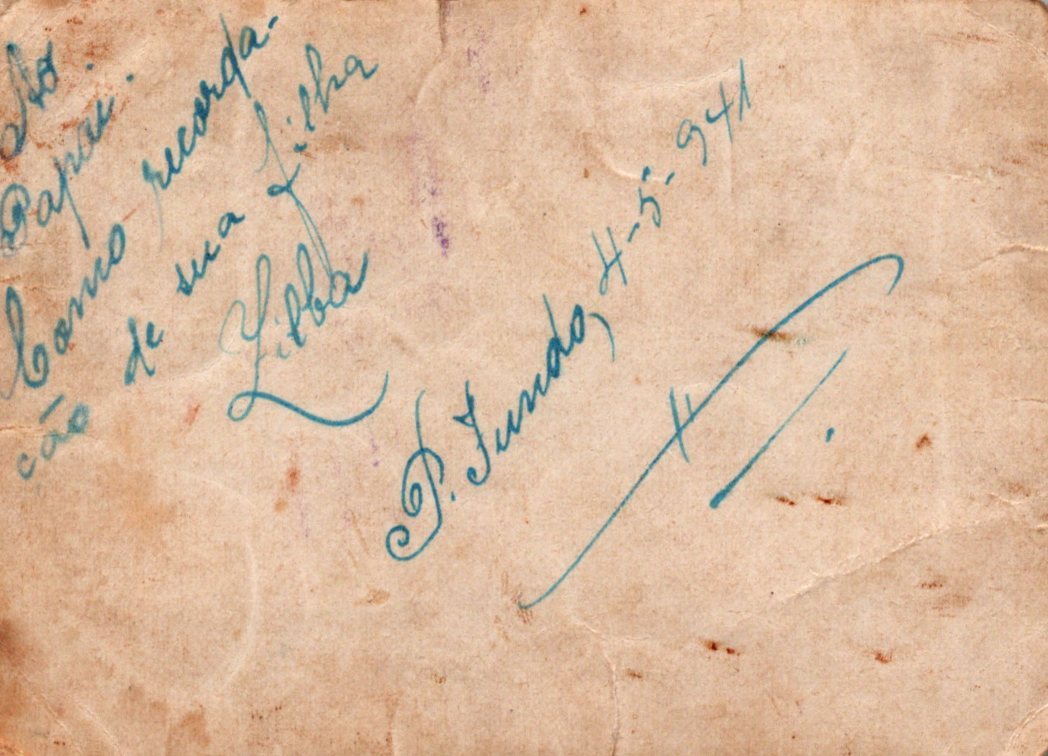 Ao
Papai.
Como recorda-
ção de sua filha
Zilba
P. Fundo, 4-5-941